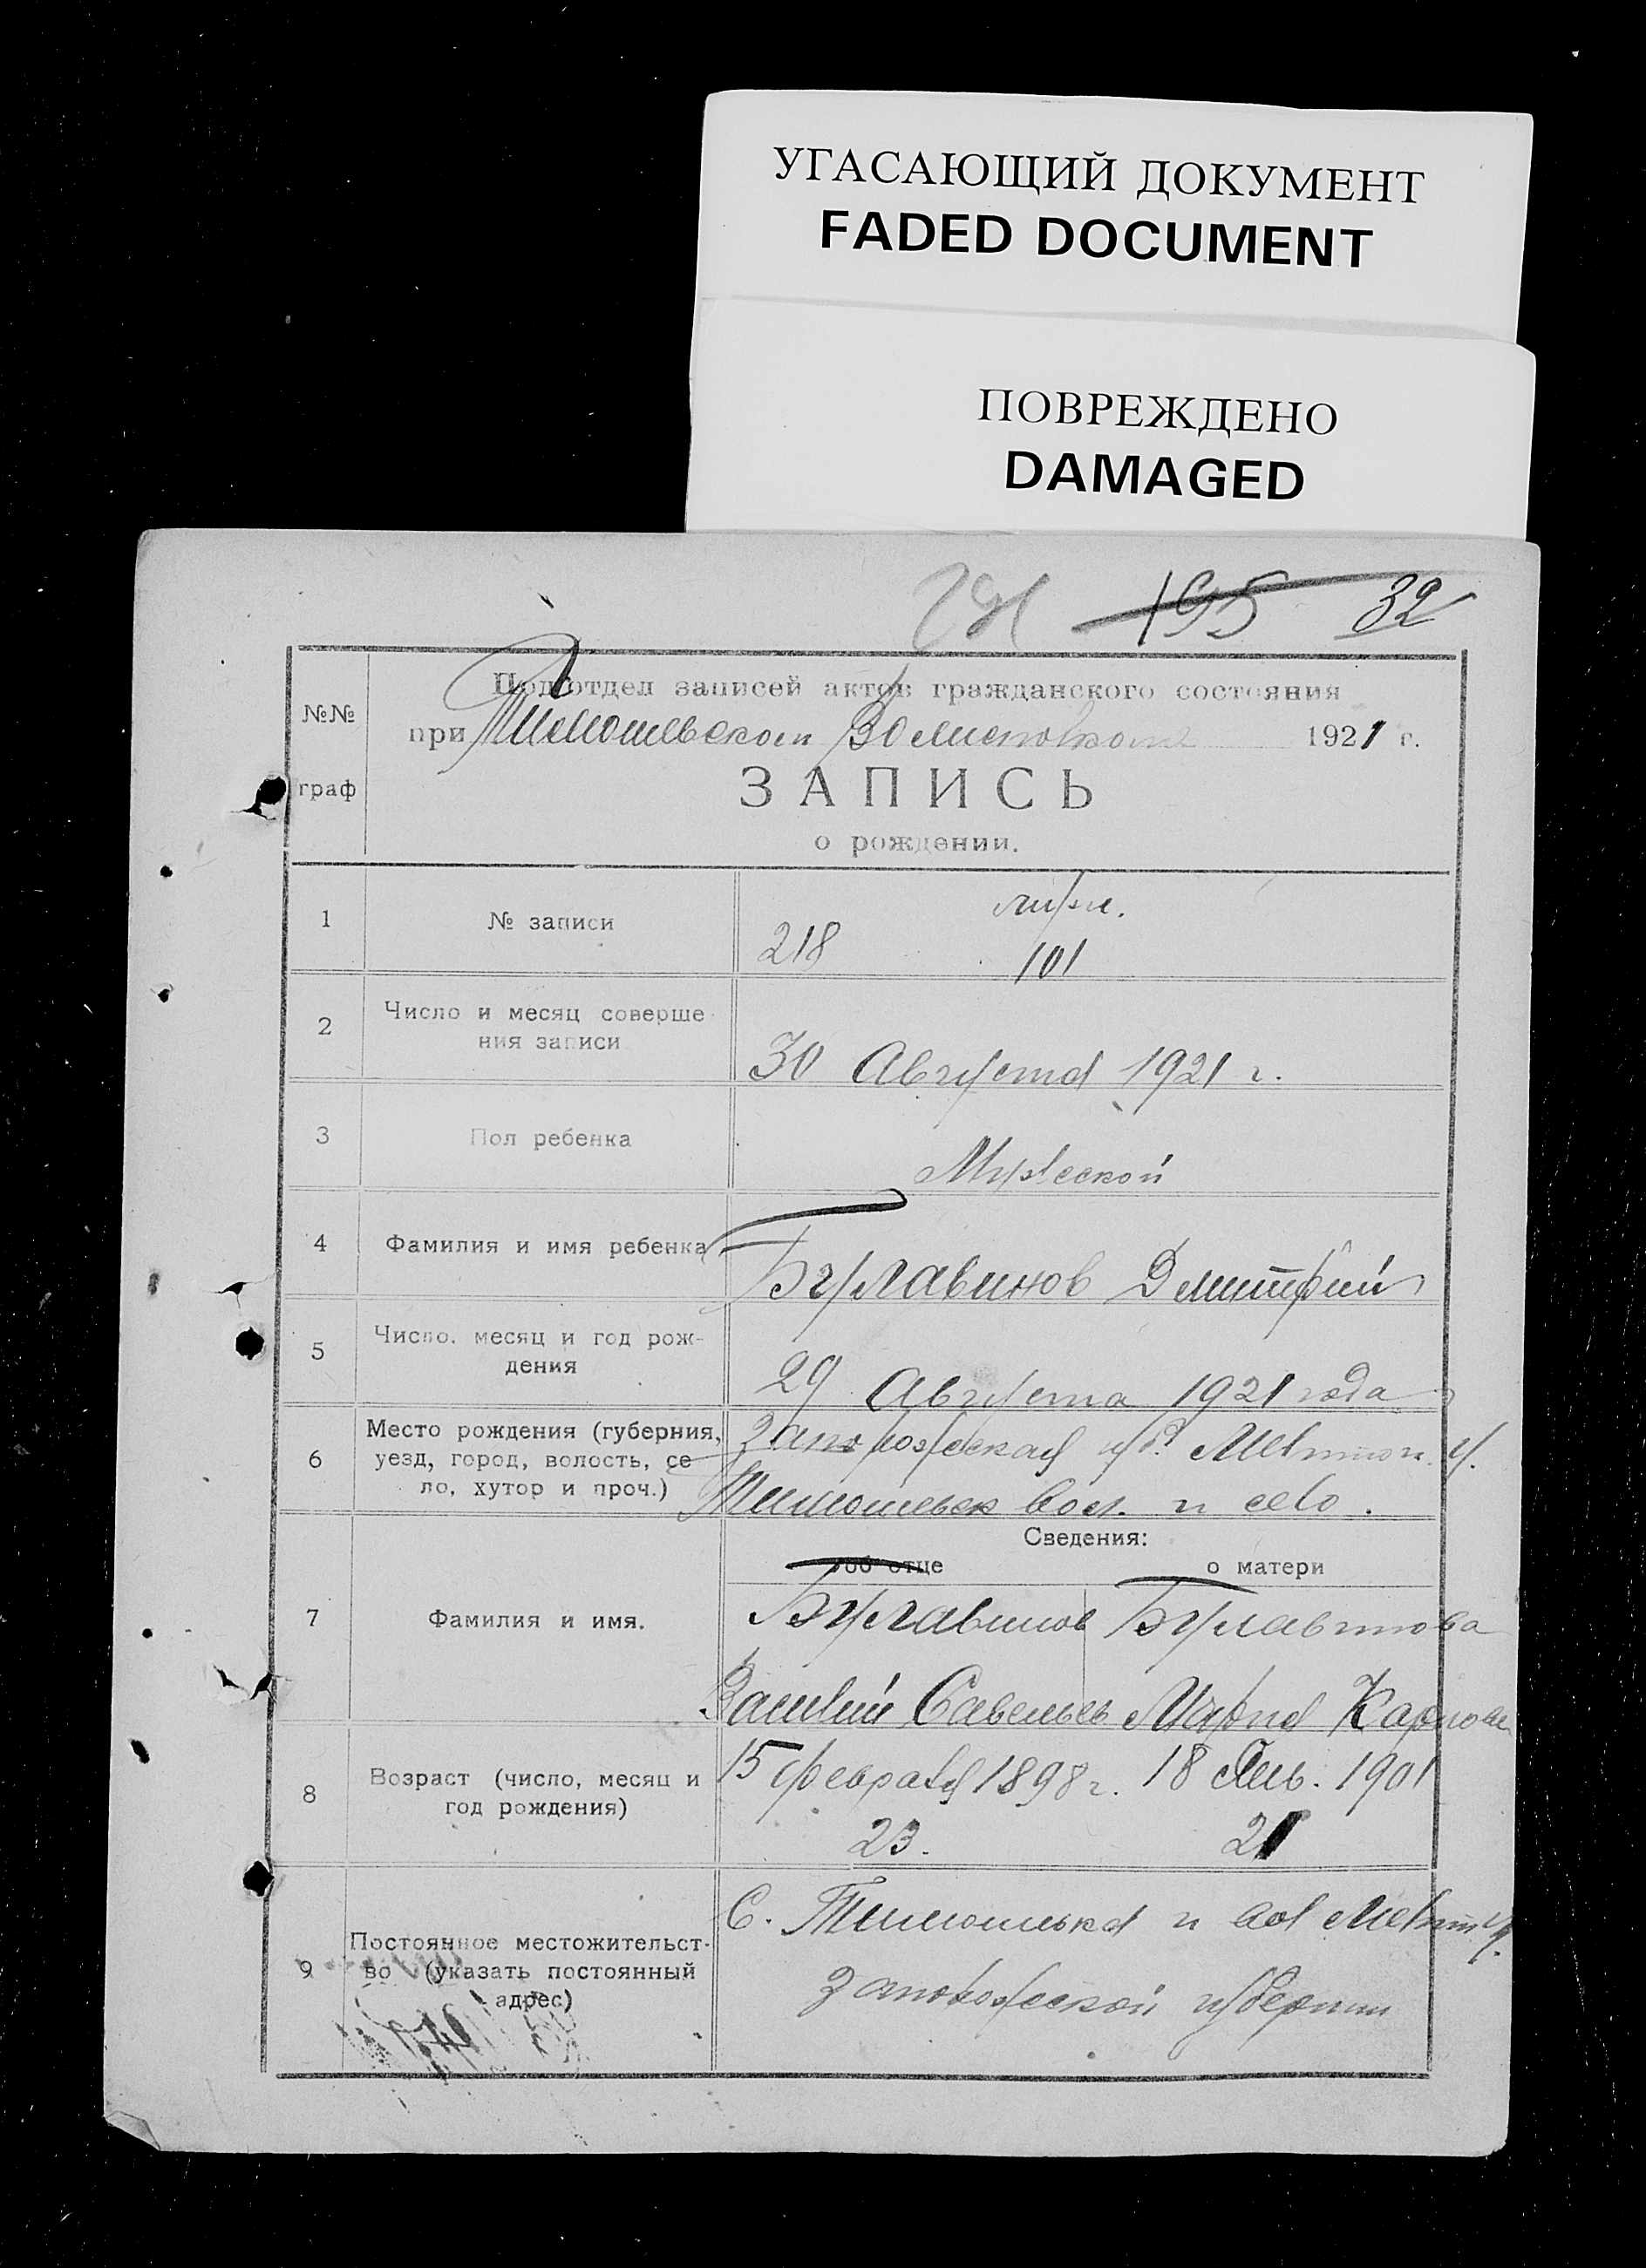 УГАСАЮЩИЙ ДОКУМЕНТ
FADED DOCUMENT
ПОВРЕЖДЕНО
DAMAGED
195 32
№№ граф
Подотдел записей актов гражданского состояния
при Тимошевском Волисполкоме 1921 г.
ЗАПИСЬ
о рождении.
1 № записи 218 101
2 Число и месяц соверше
ния записи
30 Августа 1921 г.
3 Пол ребенка Мужеской
4 Фамилия и имя ребенка Булавинов Дмитрий
5 Число, месяц и год рож-
дения
29 Августа 1921 года
6 Место рождения (губерния,
уезд, город, волость, се
ло, хутор и проч.)
Запорожская губ. Мелитоп. у.
Тимошевск вол. и село.
Сведения:
об отце о матери
7 Фамилия и имя.
Булавинов Булавинова
Василий Савельев Мария Карпова
8 Возраст (число, месяц и
год рождения)
15 февраля 1898 г. 18 Янв. 1901
23. 21
9 Постоянное местожительст-
во (указать постоянный
адрес)
С. Тимошевка и вол Мелит у.
Запорожеской губернии